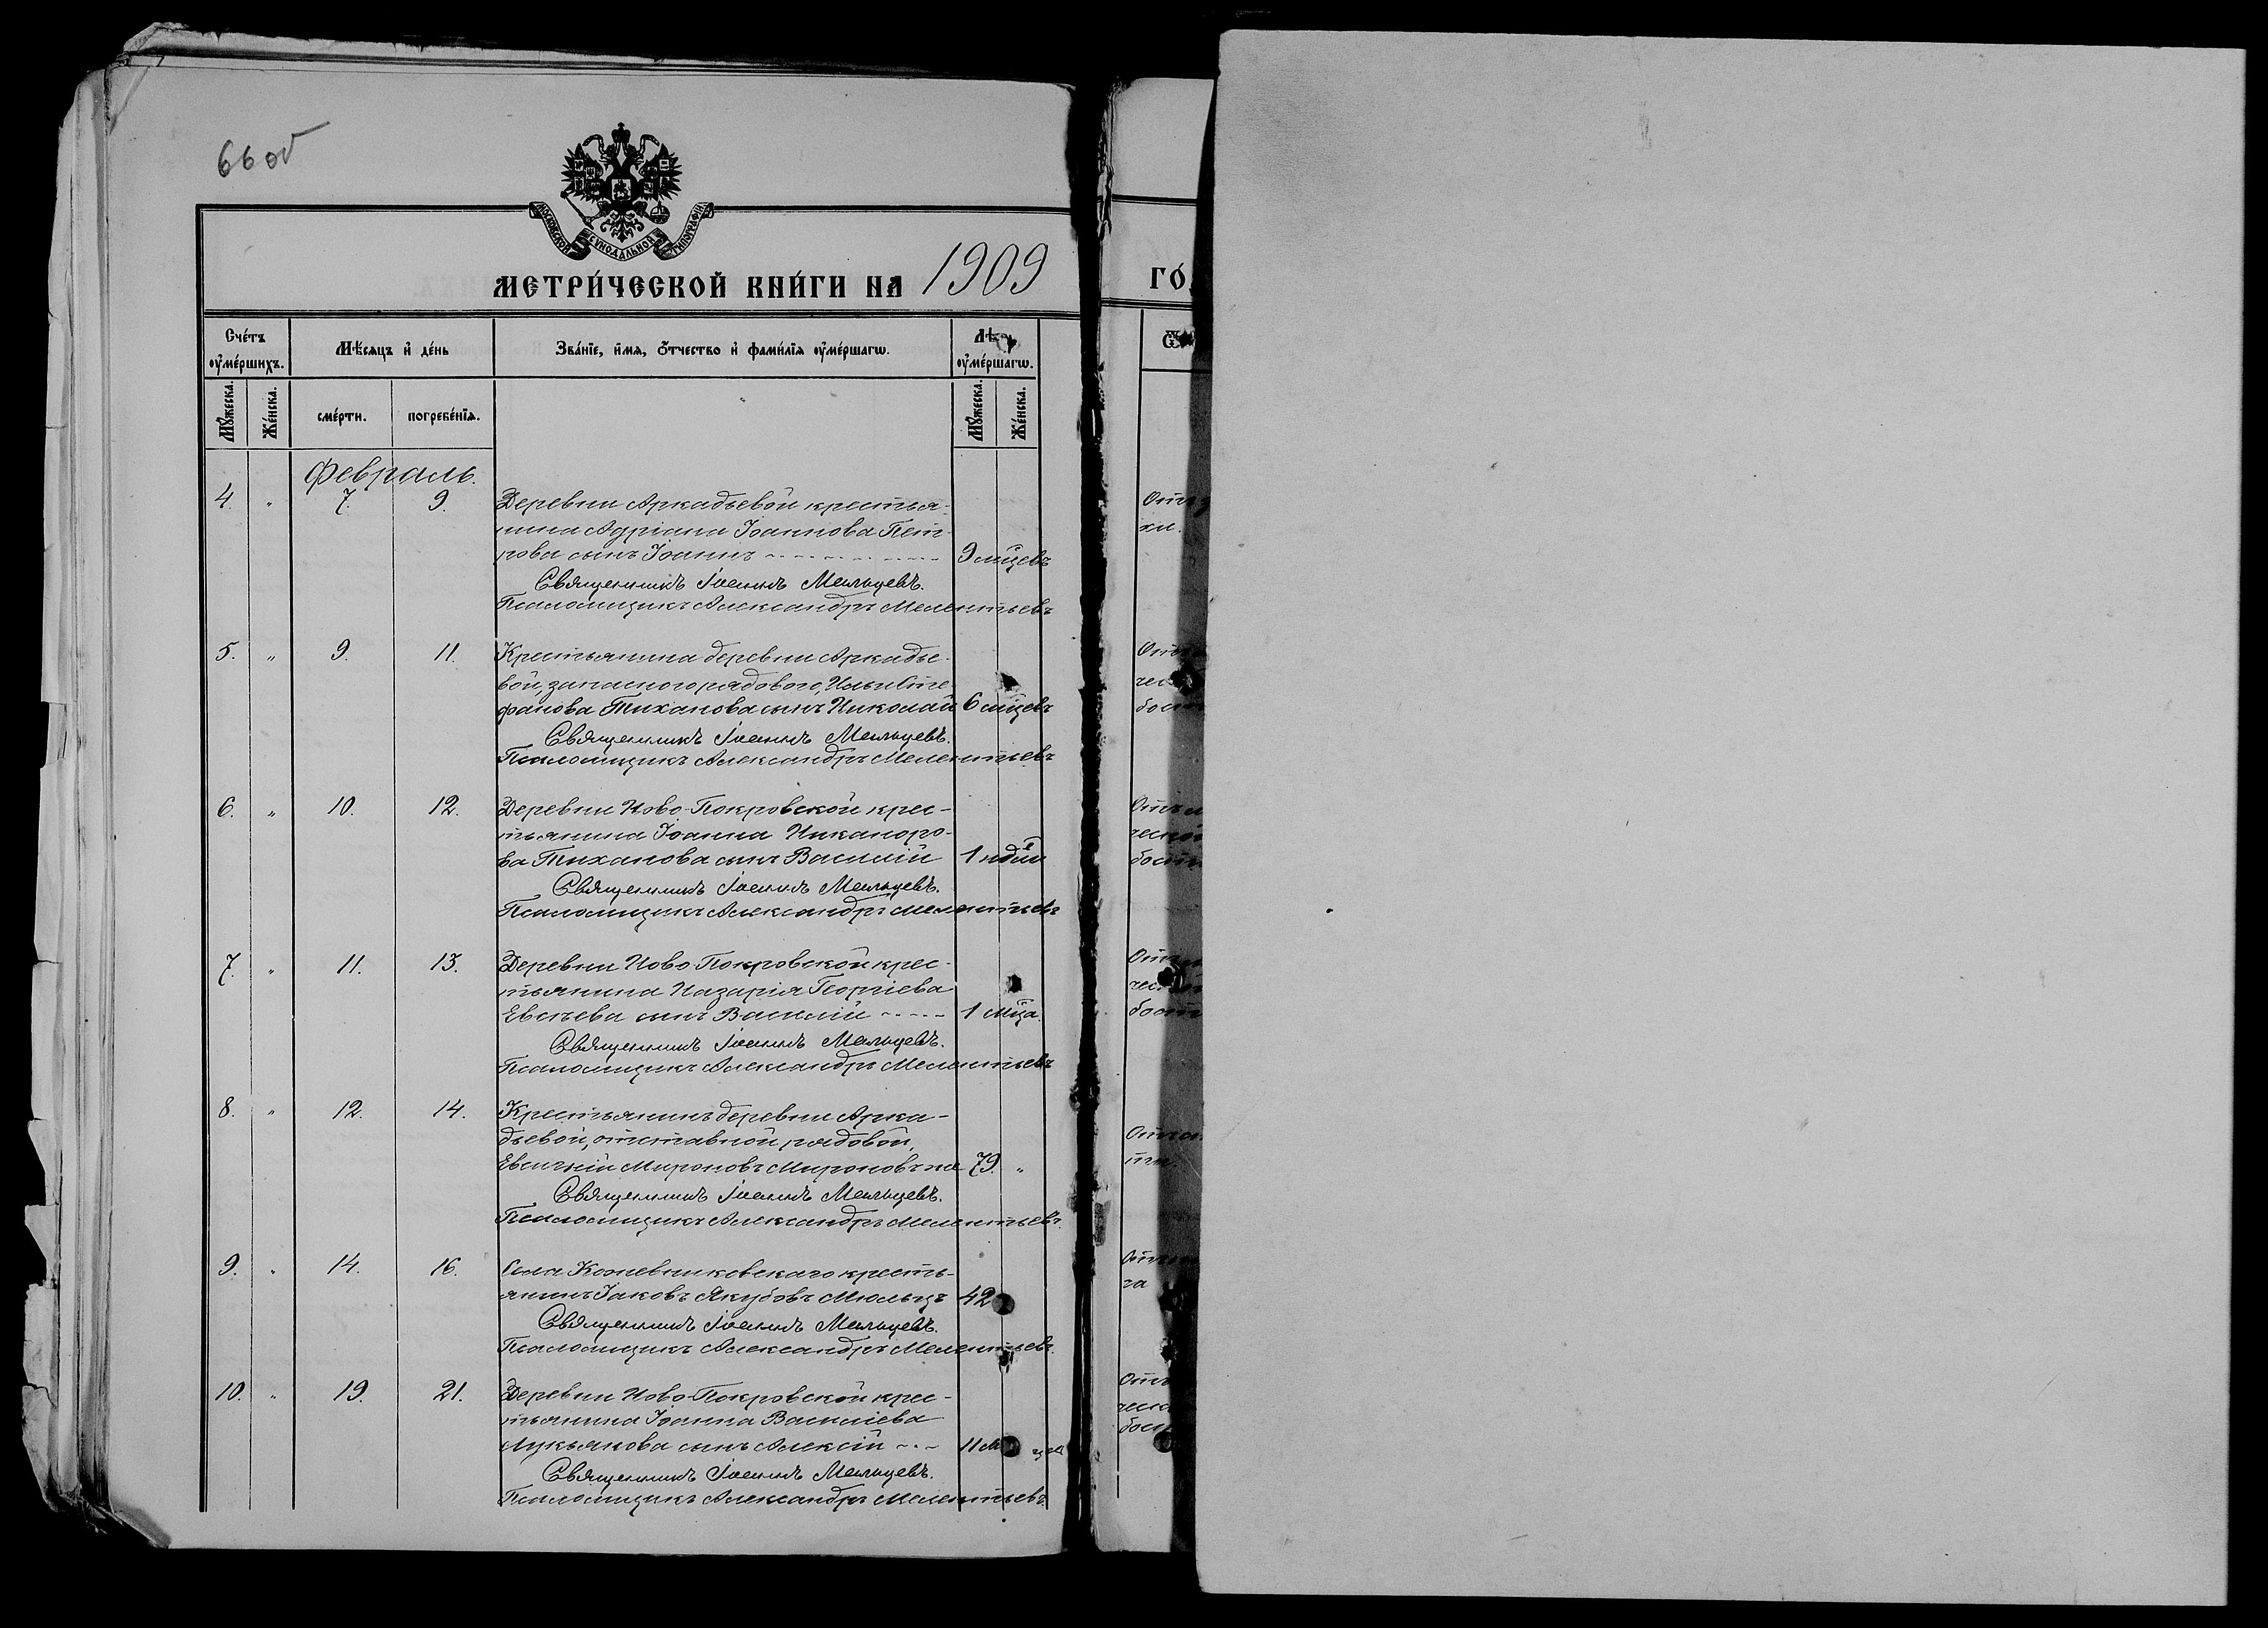 66 об
МОСКОВСКОЙ СѴНОДАЛЬНОЙ ТИПОГРАФІИ
МЕТРИ́ЧЕСКОЙ КНИ́ГИ НА 1909
ГО́
Сче́тъ ᲂу҆ме́ршихъ.
Мѣ́сяцъ и҆ де́нь
Зва́нїе, и҆́мя, ѻ҆́тчество и҆ фами́лїя ᲂу҆ме́ршагѡ.
Лѣ
ᲂу҆ме́ршагѡ.
Мꙋ́жеска.
Же́нска.
сме́рти.
погребе́нїѧ.
Мꙋ́жеска.
Же́нска.
Февраль.
4. " 7. 9. Деревни Аркадьевой крестья-
нина Адріана Іоаннова Пет-
рова сынъ Іоаннъ 9 мцевъ
Священникъ Іоаннъ Мальцевъ.
Псаломщикъ Александръ Мелентьевъ
5. " 9. 11. Крестьянина деревни Аркадье-
вой, запасного рядового, Ильи Сте-
фанова Тиханова сынъ Николай 6 мцевъ
Священникъ Іоаннъ Мальцевъ.
Псаломщикъ Александръ Мелентьевъ
6. " 10. 12. Деревни Ново-Покровской крес-
тьянина Іоанна Никаноро-
ва Тиханова сынъ Василій 1 нди
Священникъ Іоаннъ Мальцевъ.
Псаломщикъ Александръ Мелентьевъ
7. " 11. 13. Деревни Ново Покровской крес-
тьянина Назарія Георгіева
Евсѣева сынъ Василій 1 мца.
Священникъ Іоаннъ Мальцевъ.
Псаломщикъ Александръ Мелентьевъ
8. " 12. 14. Крестьянинъ деревни Арка-
дьевой, отставной рядовой,
Евсигній Мироновъ Мироновъ же 79. "
Священникъ Іоаннъ Мальцевъ.
Псаломщикъ Александръ Мелентьевъ.
9. " 14. 16. Села Кожевниковскаго кресть-
янинъ Іаковъ Якубовъ Мюльцъ 42
Священникъ Іоаннъ Мальцевъ.
Псаломщикъ Александръ Мелентьевъ.
10. " 19. 21. Деревни Ново-Покровской крес-
тьянина Іоанна Василіева
Лукьянова сынъ Алексій 11 м
Священникъ Іоаннъ Мальцевъ.
Псаломщикъ Александръ Мелентьевъ.